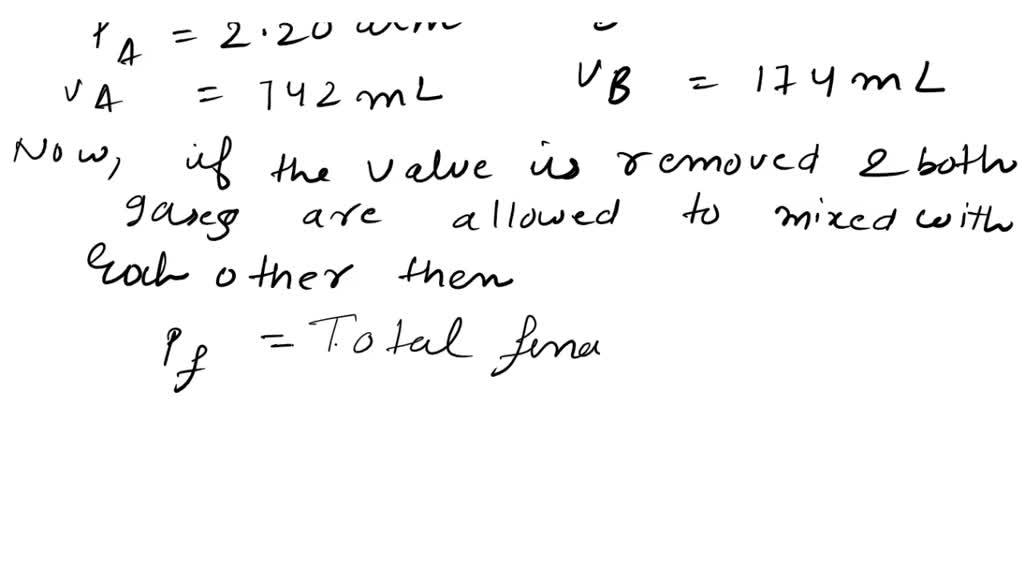 P A = 2.20 atm
V A = 742 mL V B = 174 mL
Now, if the value is removed & both
gases are allowed to mixed with
Each other then
P f = Total fina